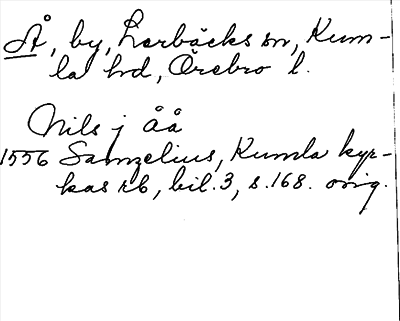 Å, by, Lerbäcks sn, Kum-
la hd, Örebro l.
Nils j åå
1556 Samzelius, Kumla kyr-
kas rb, bil. 3, s. 168. orig.